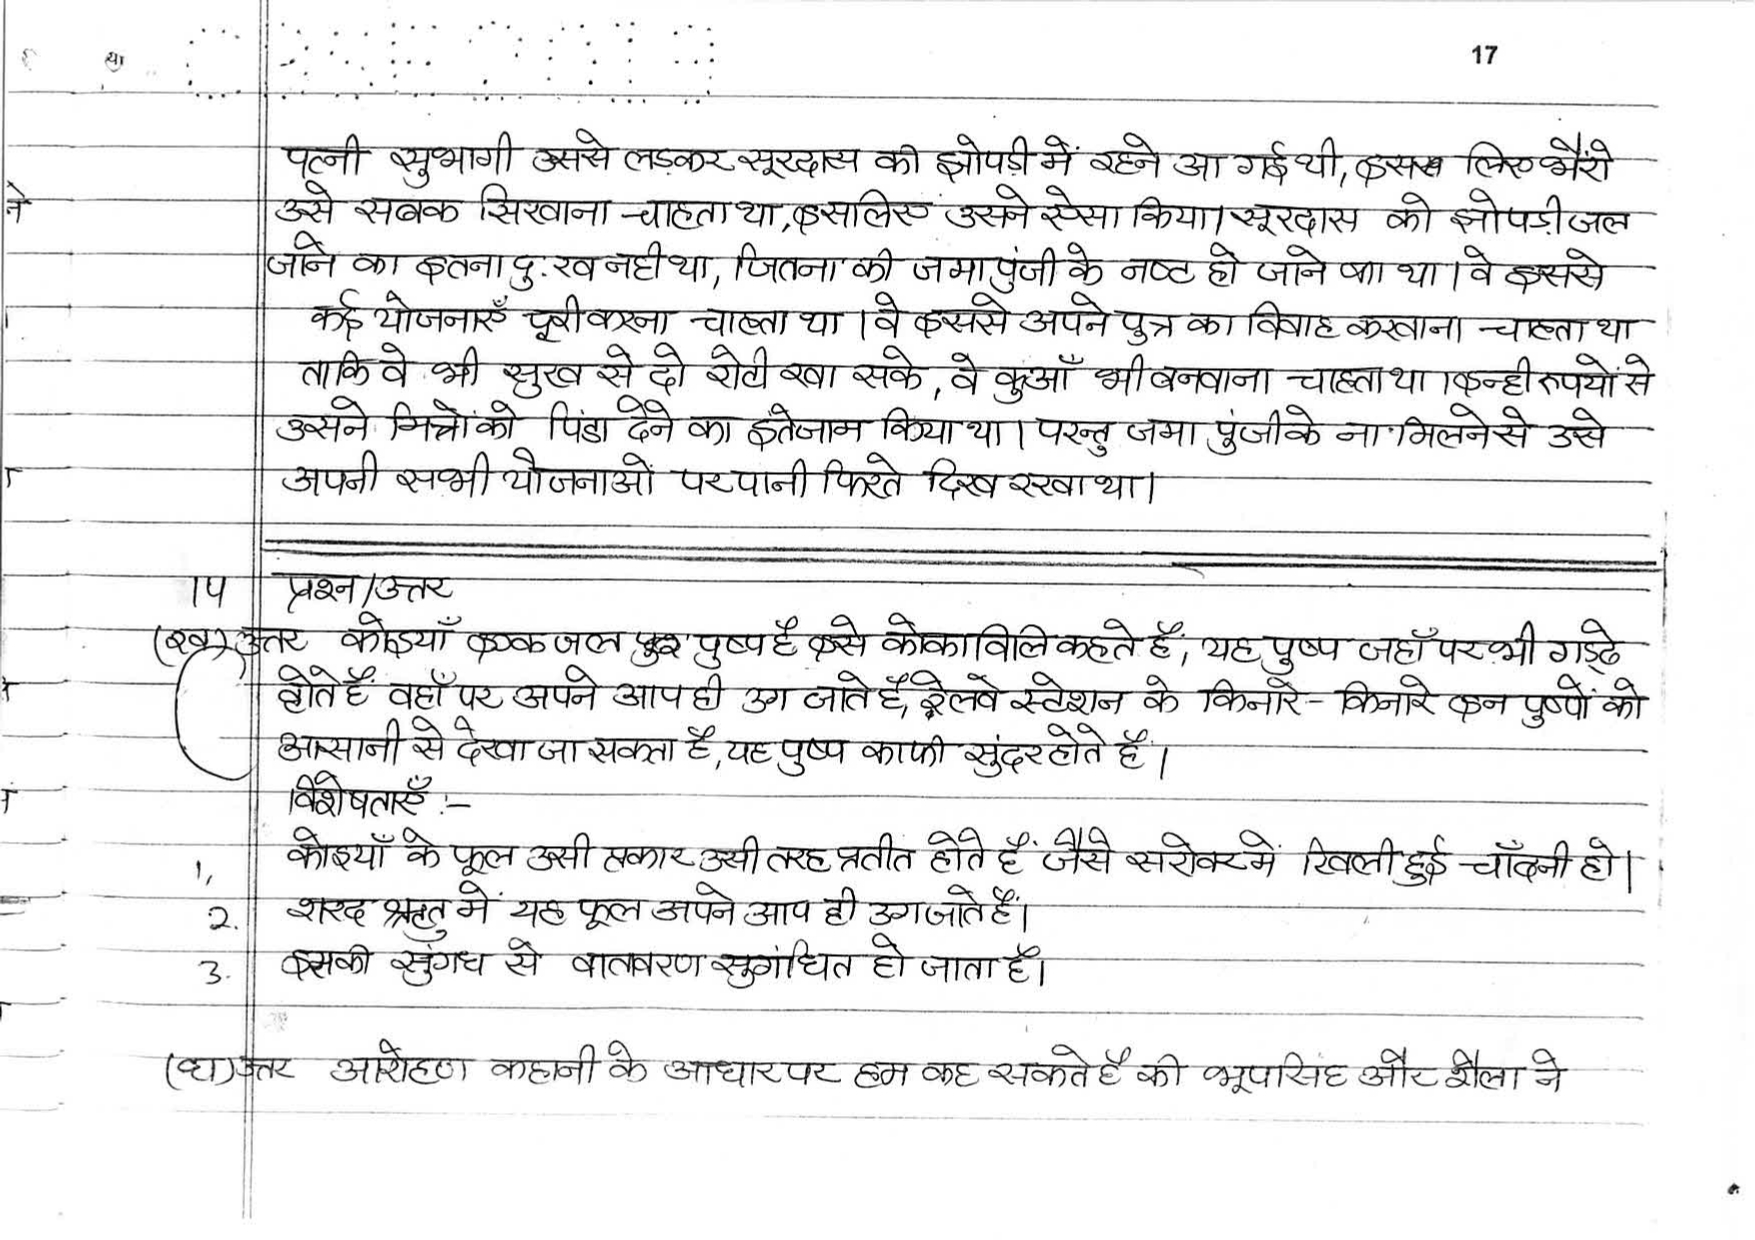 17
पत्नी सुभागी उससे लड़कर सूरदास की झोपड़ी में रहने आ गई थी, इसस लिए भैरों
उसे सबक सिखाना चाहता था, इसलिए उसने ऐसा किया। सूरदास को झोपड़ी जल
जाने का इतना दु:ख नही था, जितना की जमा पुंजी के नष्ट हो जाने का था। वे इससे
कई योजनाएँ पूरी करना चाहता था। वे इससे अपने पुत्र का विवाह करवाना चाहता था
ताकि वे भी सुख से दो रोटी खा सके, वे कुआँ भी बनवाना चाहता था। इन्ही रुपयों से
उसने मित्रों को पिंडा देने का इंतेजाम किया था। परन्तु जमा पुंजी के ना मिलने से उसे
अपनी सभी योजनाओं पर पानी फिरते दिख रखा था।
14 प्रश्न/उत्तर
(ख) उत्तर कोइयाँ एक जल पुष्प है इसे कोकाविलि कहते हैं, यह पुष्प जहाँ पर भी गड्ढे
होते हैं वहाँ पर अपने आप ही उग जाते हैं, रेलवे स्टेशन के किनारे - किनारे इन पुष्पों को
आसानी से देखा जा सकता है, यह पुष्प काफी सुंदर होते हैं।
विशेषताएँ :-
1, कोइयाँ के फूल उसी प्रकार उसी तरह प्रतीत होते हैं जैसे सरोवर में खिली हुई चाँदनी हो।
2. शरद ऋतु में यह फूल अपने आप ही उग जाते हैं।
3. इसकी सुंगध से वातवरण सुगंधित हो जाता है।
(घ) उत्तर आरोहण कहानी के आधार पर हम कह सकते है की भूपसिंह और शैला ने